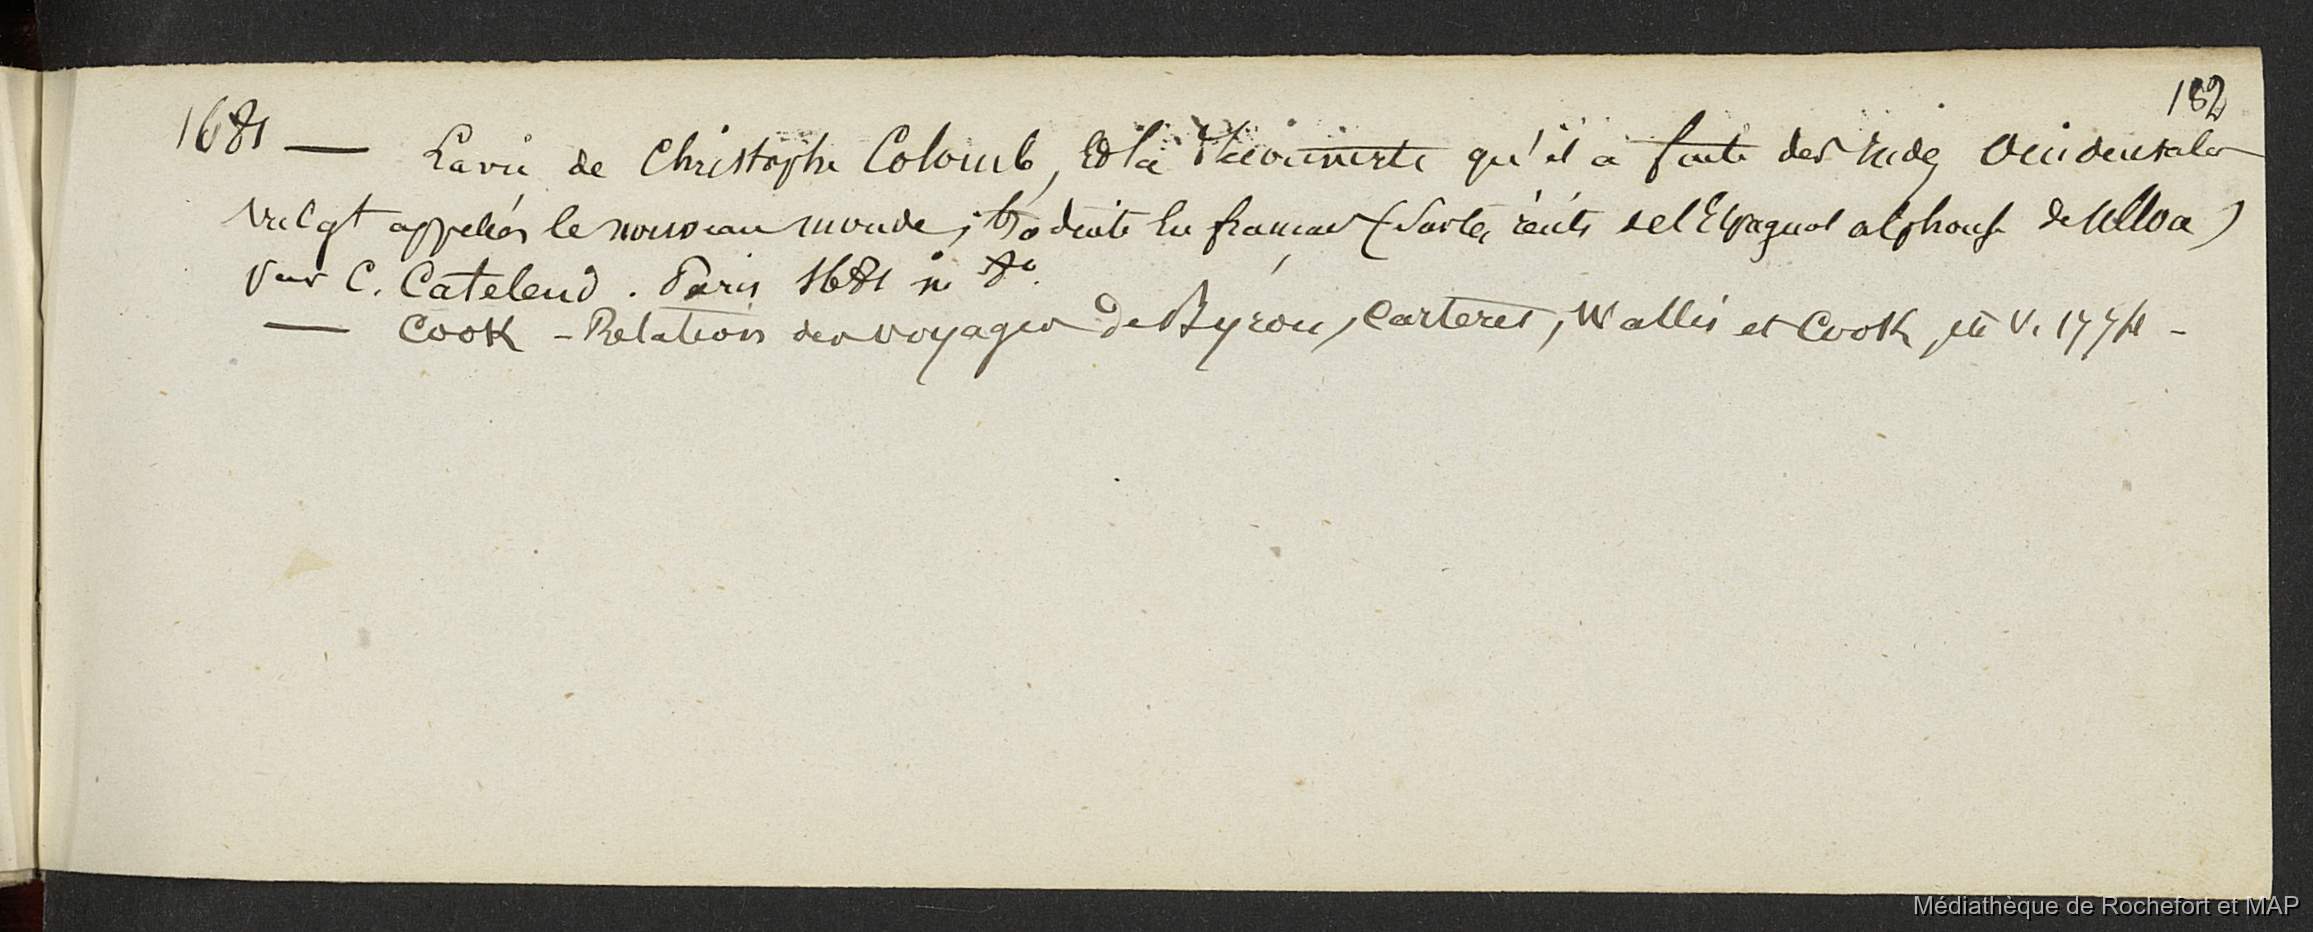 182
1681 — La vie de Christophe Colomb, et la découverte qu'il a faite des Indes Occidentales
vulgt appelées le nouveau monde ; traduite en français (sur les récits de l'Espagnol Alphonse de Ulloa)
par C. Cotelend. Paris 1681 in 8°.
— Cook - Relation des voyages de Byron, Carteret, Wallis et Cook, etc V. 1774 -
Médiathèque de Rochefort et MAP